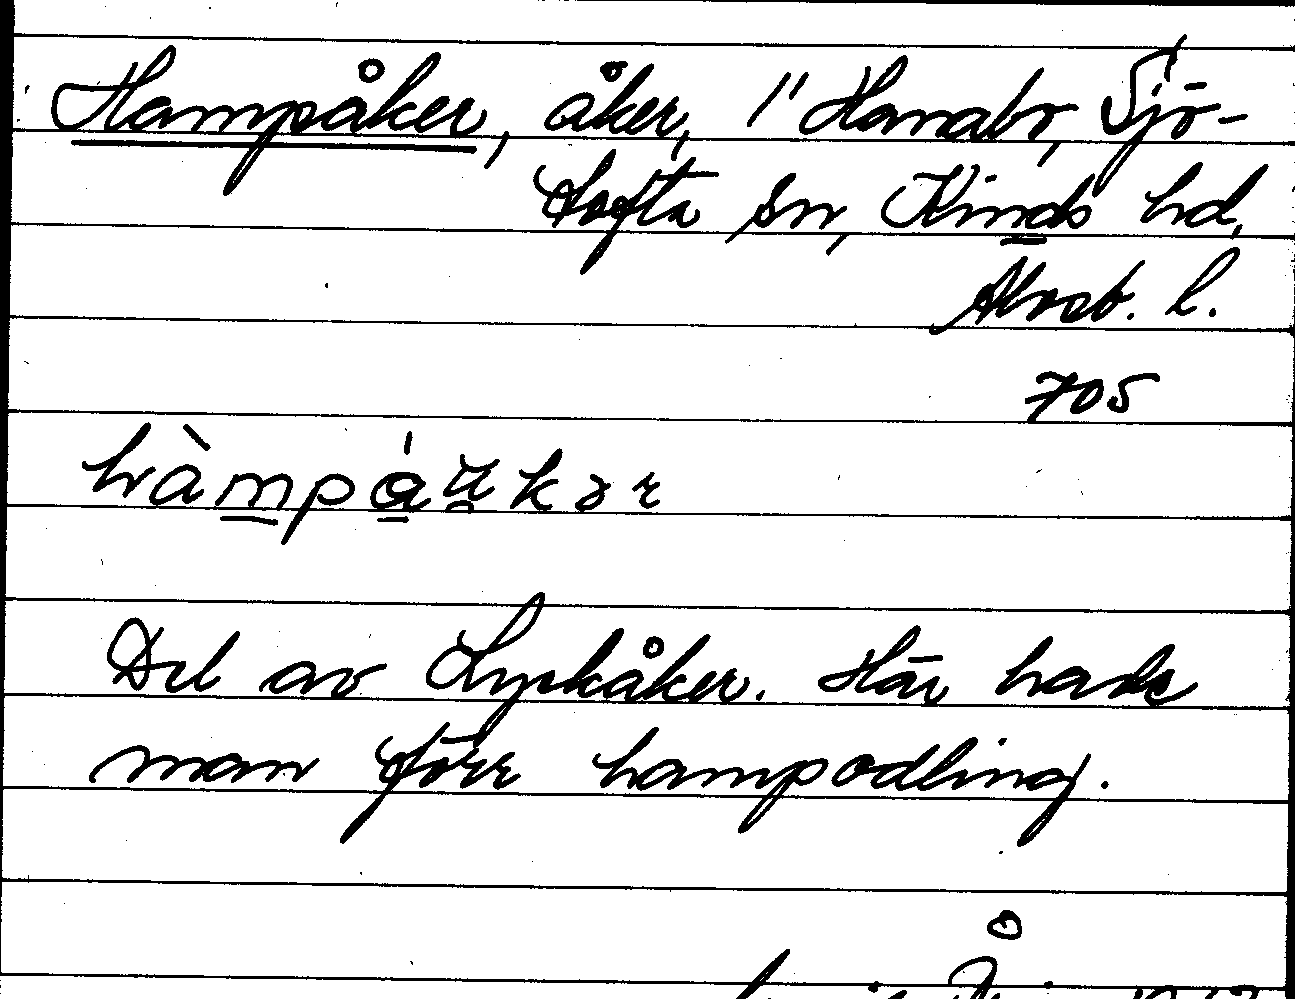 Hampåker, åker, 1" Hanabo, Sjö-
tofta sn, Kinds hd,
Älvsb. l.
705
hàmpåu̯kər
Del av Lyckåker. Här hade
man förr hampodling.